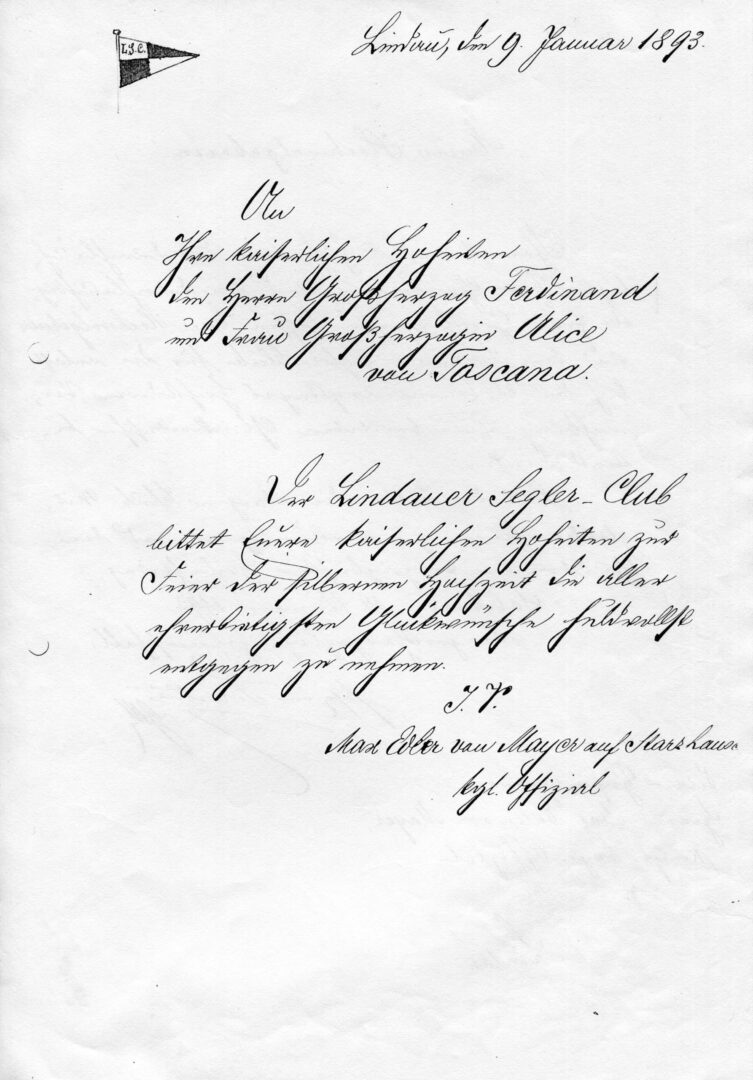 L.S.C.
Lindau, den 9. Januar 1893.
An
Ihre kaiserlichen Hoheiten
den Herrn Großherzog Ferdinand
und Frau Großherzogin Alice
von Toscana.
Der Lindauer Segler-Club
bittet Euere kaiserlichen Hoheiten zur
Feier der silbernen Hochzeit die aller
ehrerbietigsten Glückwünsche huldvollst
entgegen zu nehmen.
I. V.
Max Edler von Mayer auf Starzhausen
kgl. Offizial